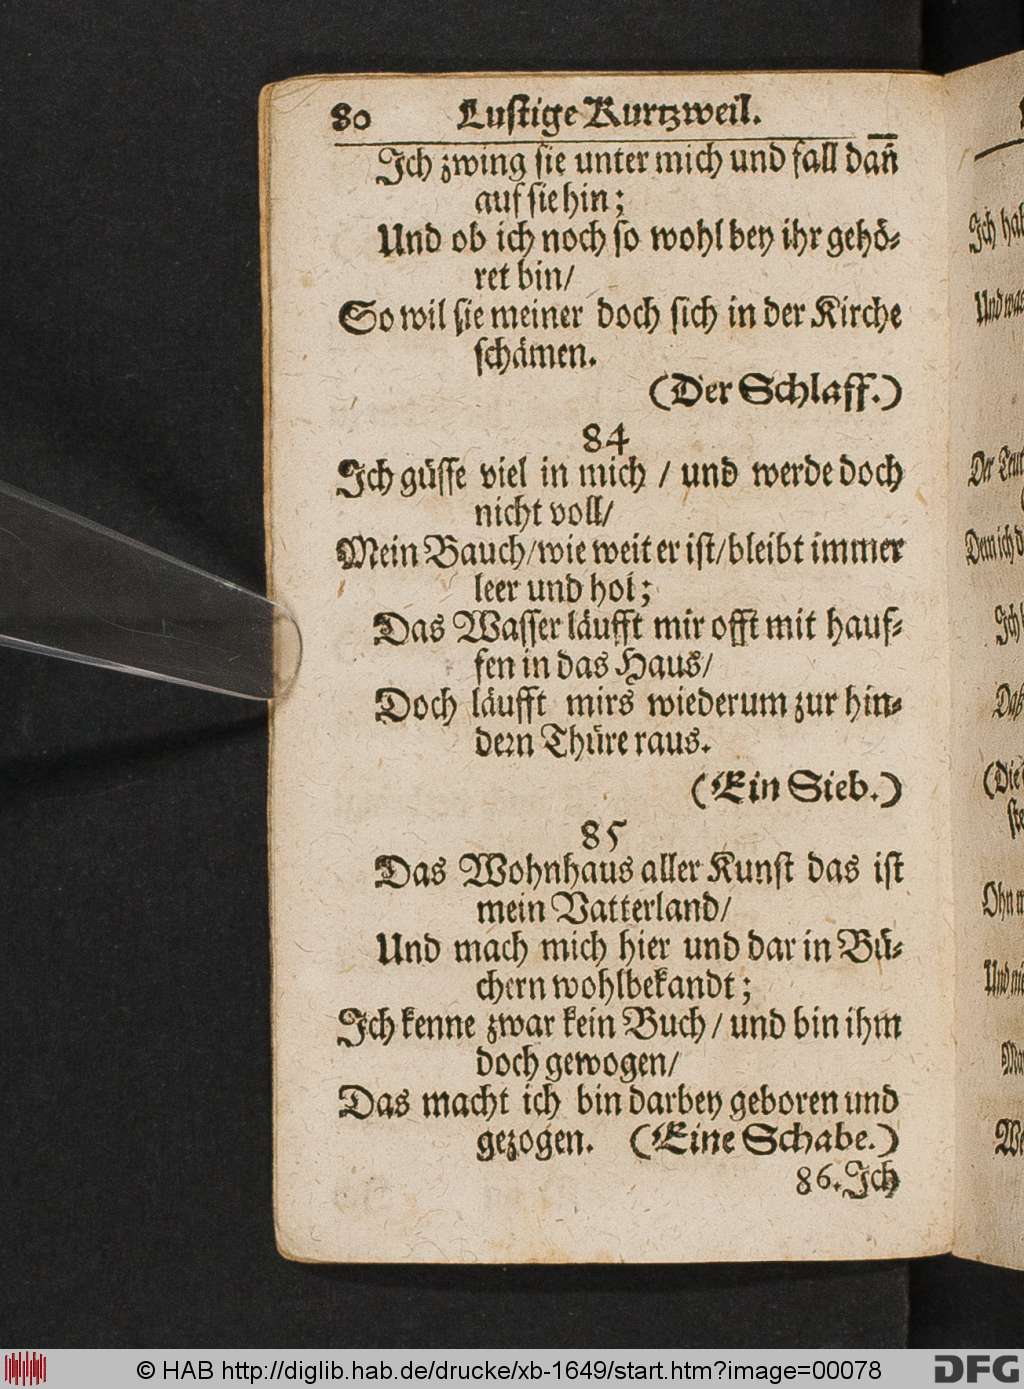 80 Lustige Kurtzweil.
Ich zwing sie unter mich und fall dañ
auf sie hin;
Und ob ich noch so wohl bey ihr gehö-
ret bin/
So wil sie meiner doch sich in der Kirche
schämen.
(Der Schlaff.)
84
Ich güsse viel in mich / und werde doch
nicht voll/
Mein Bauch/wie weit er ist/bleibt immer
leer und hol;
Das Wasser läufft mir offt mit hauf-
fen in das Haus/
Doch läufft mirs wiederum zur hin-
dern Thüre raus.
(Ein Sieb.)
85
Das Wohnhaus aller Kunst das ist
mein Vatterland/
Und mach mich hier und dar in Bü-
chern wohlbekandt;
Ich kenne zwar kein Buch / und bin ihm
doch gewogen/
Das macht ich bin darbey geboren und
gezogen. (Eine Schabe.)
86. Ich
Ich
Und
Der
Dem ich
Ich
Daß
(Die
Und
© HAB http://diglib.hab.de/drucke/xb-1649/start.htm?image=00078
DFG